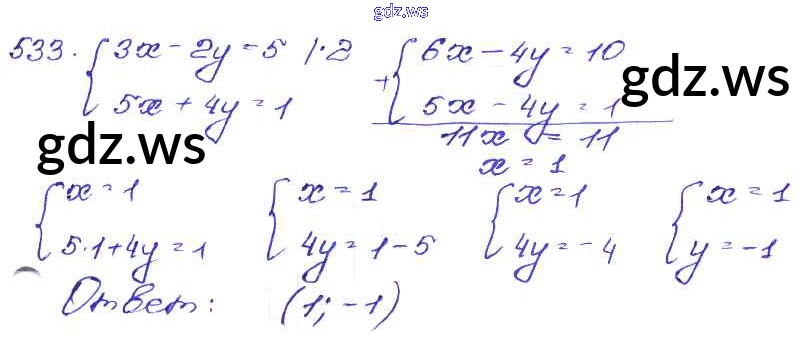 gdz.ws
533. { 3x - 2y = 5 | · 2    + { 6x - 4y = 10
5x + 4y = 1    5x - 4y = 1
gdz.ws
gdz.ws
11x = 11
x = 1
{ x = 1    { x = 1    { x = 1    { x = 1
5·1 + 4y = 1    4y = 1 - 5    4y = - 4    y = -1
Ответ: (1; -1)